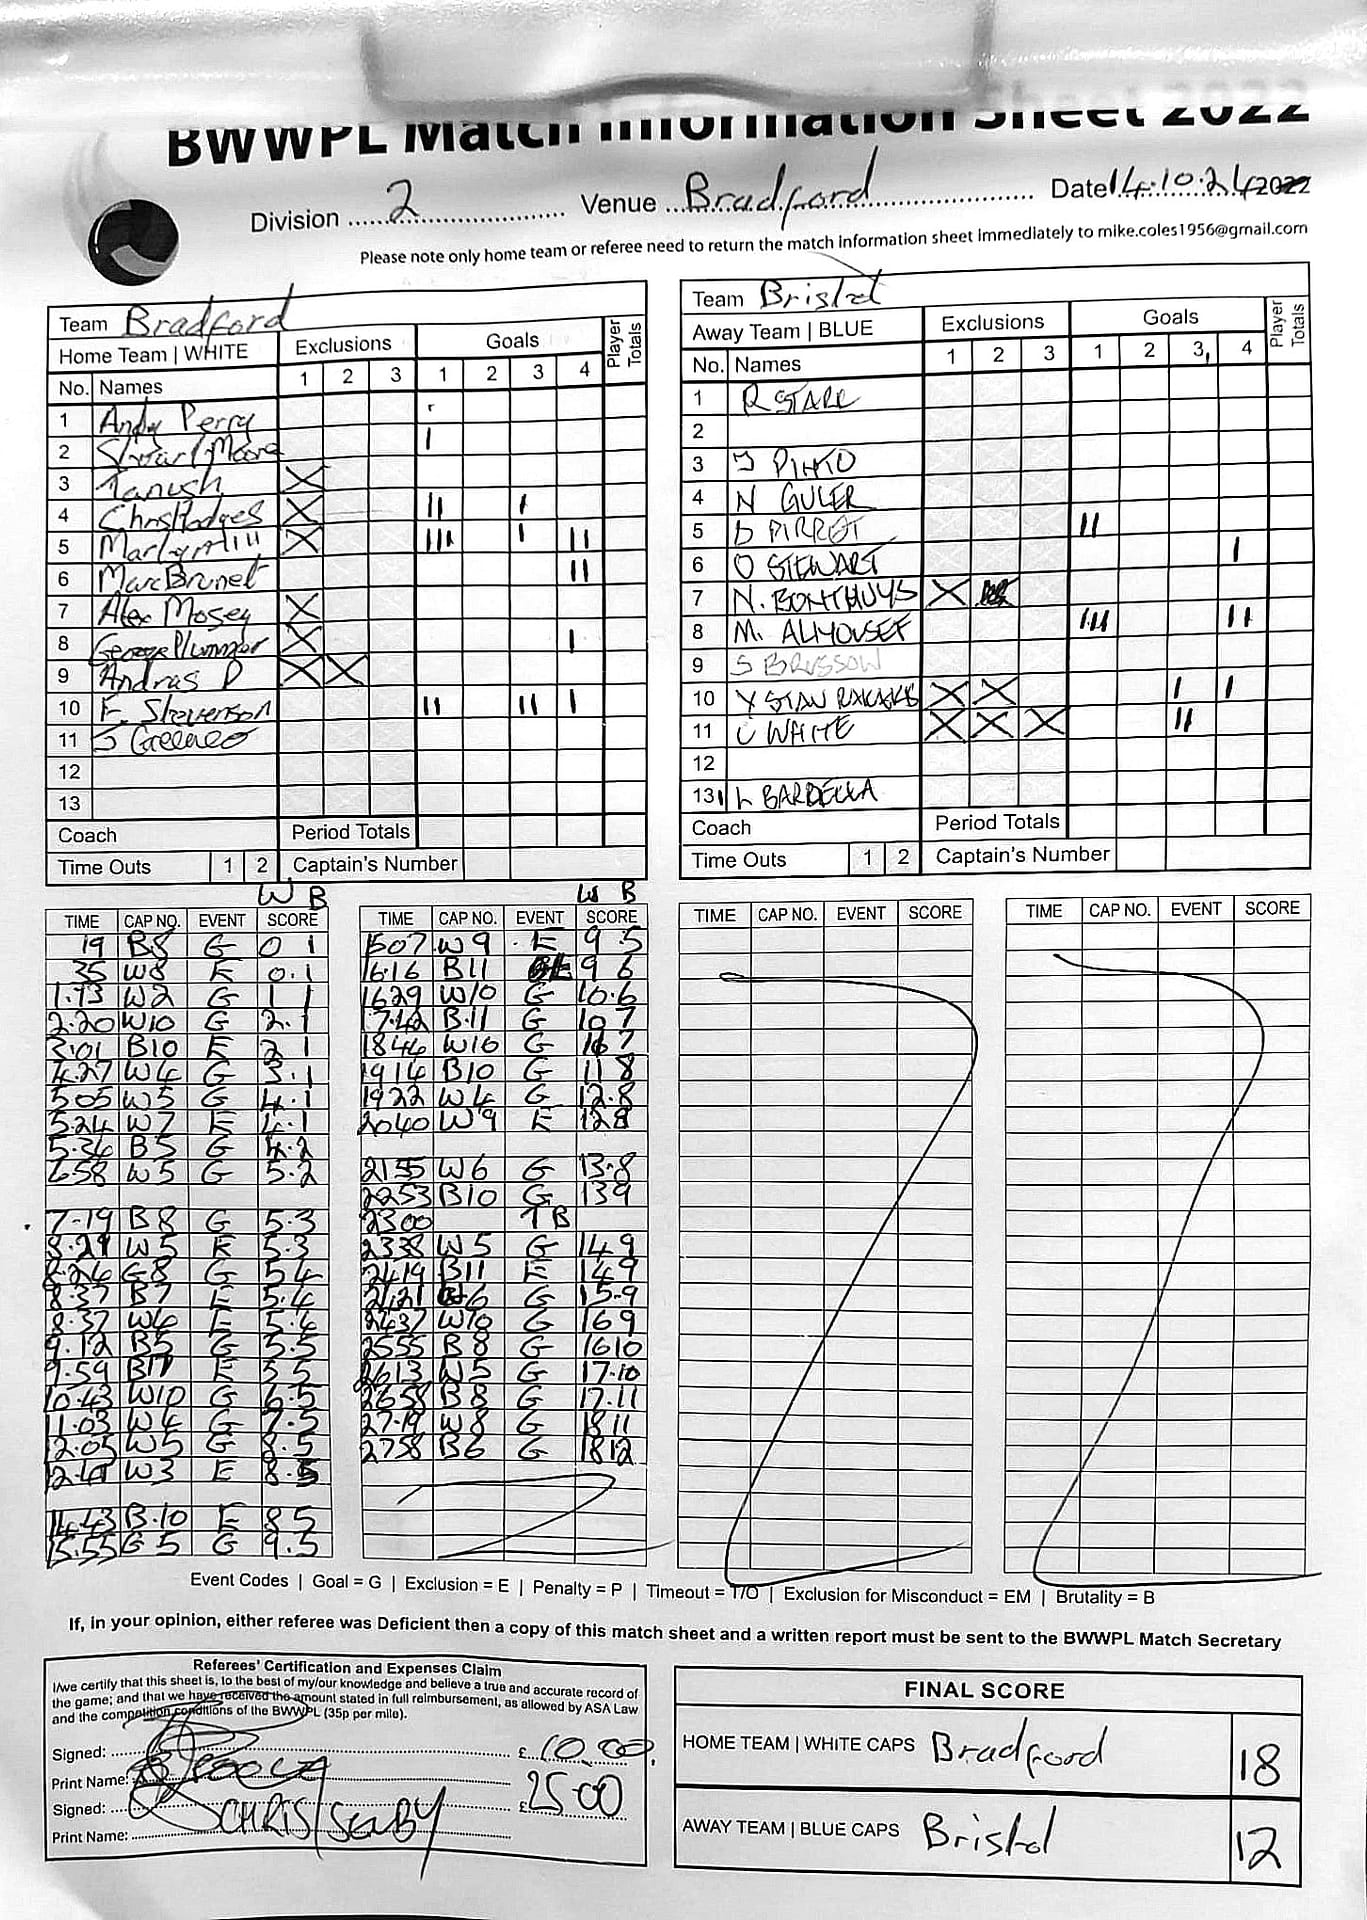 BWWPL Match Information Sheet 2022
Division 2 Venue Bradford Date 14.10.24 2022
Please note only home team or referee need to return the match information sheet immediately to mike.coles1956@gmail.com
Team Bradford
Home Team | WHITE Exclusions Goals Player Totals
No. Names 1 2 3 1 2 3 4
1 Andy Perry
2 Stuart Moore
3 Tanush X
4 Chris Hodges X II I
5 Martyn Hill X III I II
6 Marc Brunet II
7 Alex Mosey X
8 George Plummer X I
9 Andras D X X
10 F. Stevenson II II I
11 S
12
13
Coach Period Totals
Time Outs 1 2 Captain's Number
Team Bristol
Away Team | BLUE Exclusions Goals Player Totals
No. Names 1 2 3 1 2 3 4
1 R STARR
2
3 J PINTO
4 N GULER
5 D PIRROT II
6 O STEWART I
7 N. BONTHUYS X
8 M. ALMOUSEF III II
9 S BRUSSOW
10 Y STAN X X I I
11 C WHITE X X X II
12
13 L BARDELLA
Coach Period Totals
Time Outs 1 2 Captain's Number
W B
TIME CAP NO. EVENT SCORE
19 B8 G 0 1
35 W8 E 0.1
1.13 W2 G 1 1
2.20 W10 G 2.1
3.01 B10 E 2 1
4.27 W4 G 3.1
5.05 W5 G 4.1
5.24 W7 E 4.1
5.36 B5 G 4.2
6.58 W5 G 5.2
7-19 B8 G 5.3
8.21 W5 E 5.3
8.26 G8 G 54
8.37 B7 E 5.4
8.37 W4 E 5.4
9.12 B5 G 5.5
9.59 B11 E 55
10.43 W10 G 6.5
11.03 W4 G 7.5
12.05 W5 G 8.5
W3 E 8.5
14.43 B.10 E 8 5
15.55 G 5 G 9.5
W B
TIME CAP NO. EVENT SCORE
1507 W9 E 9 5
16.16 B11 9 6
1629 W10 G 10.6
1742 B.11 G 10 7
1846 W10 G 7
1914 B10 G 11 8
1922 W4 G 12.8
2040 W9 E 128
2155 W6 G 13-8
2253 B10 G 139
2300 T B
2338 W5 G 149
2419 B11 E 149
2421 6 G 15-9
2437 W10 G 169
2555 B8 G 1610
2613 W5 G 17-10
2658 B8 G 17.11
27-19 W8 G 1811
2758 B6 G 1812
TIME CAP NO. EVENT SCORE
TIME CAP NO. EVENT SCORE
Event Codes | Goal = G | Exclusion = E | Penalty = P | Timeout = T/O | Exclusion for Misconduct = EM | Brutality = B
If, in your opinion, either referee was Deficient then a copy of this match sheet and a written report must be sent to the BWWPL Match Secretary
Referees' Certification and Expenses Claim
I/we certify that this sheet is, to the best of my/our knowledge and believe a true and accurate record of
the game; and that we have received the amount stated in full reimbursement, as allowed by ASA Law
and the competition conditions of the BWWPL (35p per mile).
Signed: £ 10.00
Print Name:
Signed: £ 25 00
Print Name: CHRIS
FINAL SCORE
HOME TEAM | WHITE CAPS Bradford 18
AWAY TEAM | BLUE CAPS Bristol 12